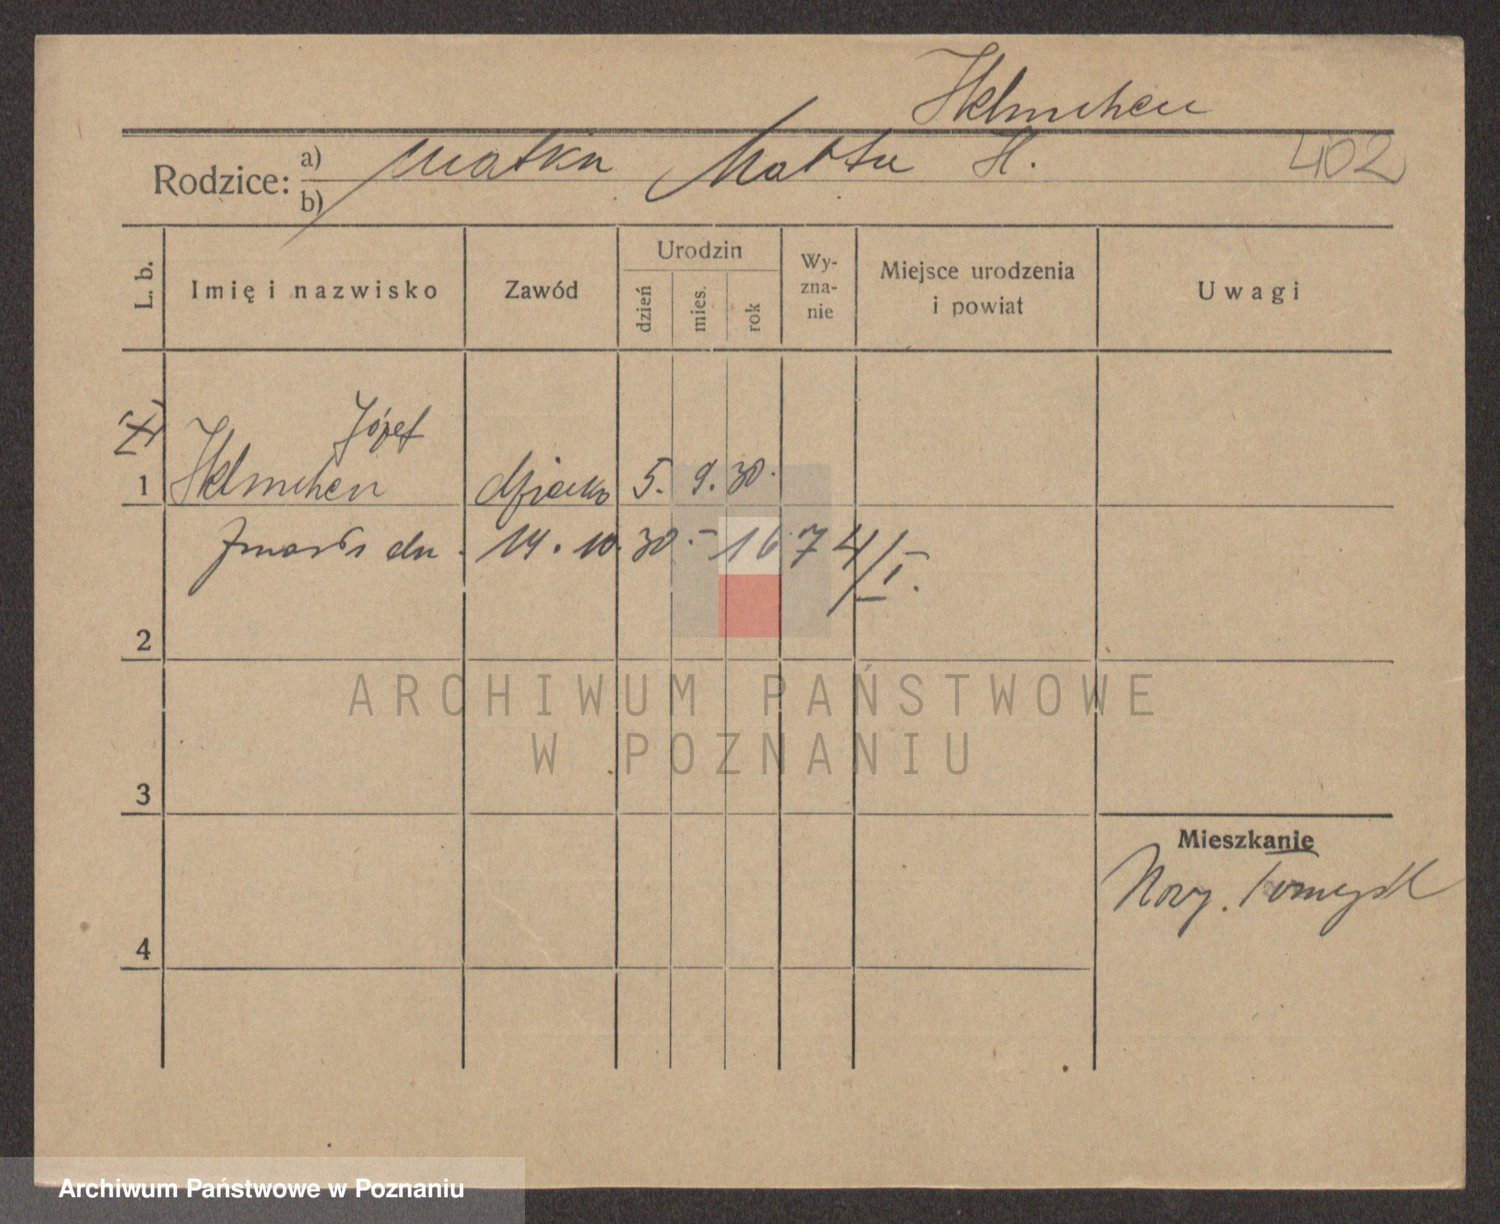 Helmchen
Rodzice: a) matka Marta H. 402
b)
L. b. Imię i nazwisko Zawód Urodzin dzień mies. rok Wy-zna-nie Miejsce urodzenia i powiat Uwagi
Józef
1 Helmchen dziecko 5. 9. 30.
zmarł dn. 14. 10. 30. – 1674/I.
2
3
Mieszkanie
Nowy Tomyśl
4
ARCHIWUM PAŃSTWOWE
W POZNANIU
Archiwum Państwowe w Poznaniu